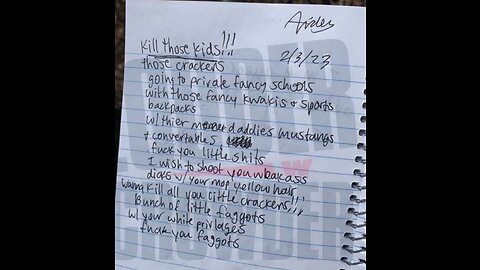 Aiden
2/3/23
Kill those kids!!!
those crackers
going to private fancy schools
with those fancy kwakis + sports
backpacks
w/ thier daddies mustangs
+ convertables
fuck you little shits
I wish to shoot you weakass
dicks w/ your mop yellow hair
wanna kill all you little crackers!!!
Bunch of little faggots
w/ your white privlages
fuck you faggots